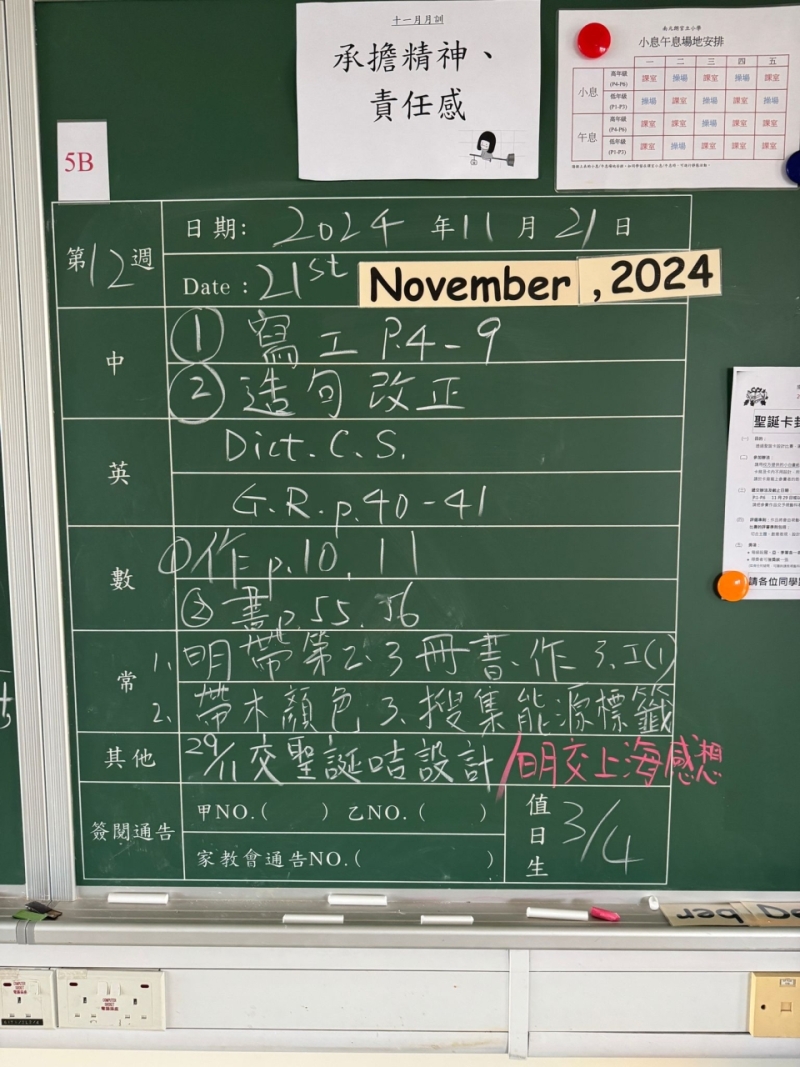 十一月月訓
承擔精神、
責任感
南元朗官立小學
小息午息場地安排
一 二 三 四 五
小息 高年級 (P4-P6) 課室 操場 課室 操場 課室
低年級 (P1-P3) 操場 課室 操場 課室 操場
午息 高年級 (P4-P6) 課室 課室 操場 課室 課室
低年級 (P1-P3) 課室 操場 課室 課室 課室
5B
第12週
日期: 2024 年 11 月 21 日
Date : 21st November , 2024
中
① 寫工 P.4-9
② 造句改正
英
Dict. C.S.
G.R. p.40-41
數
①作 p.10, 11
②書 p.55, 56
常
1. 明帶第2.3冊書、作3.工(1)
2. 帶木顏色 3. 搜集能源標籤
其他
29/11交聖誕咭設計/明交上海感想
簽閱通告
甲NO.( ) 乙NO.( )
家教會通告NO.( )
值日生
3/4
聖誕卡封
請各位同學